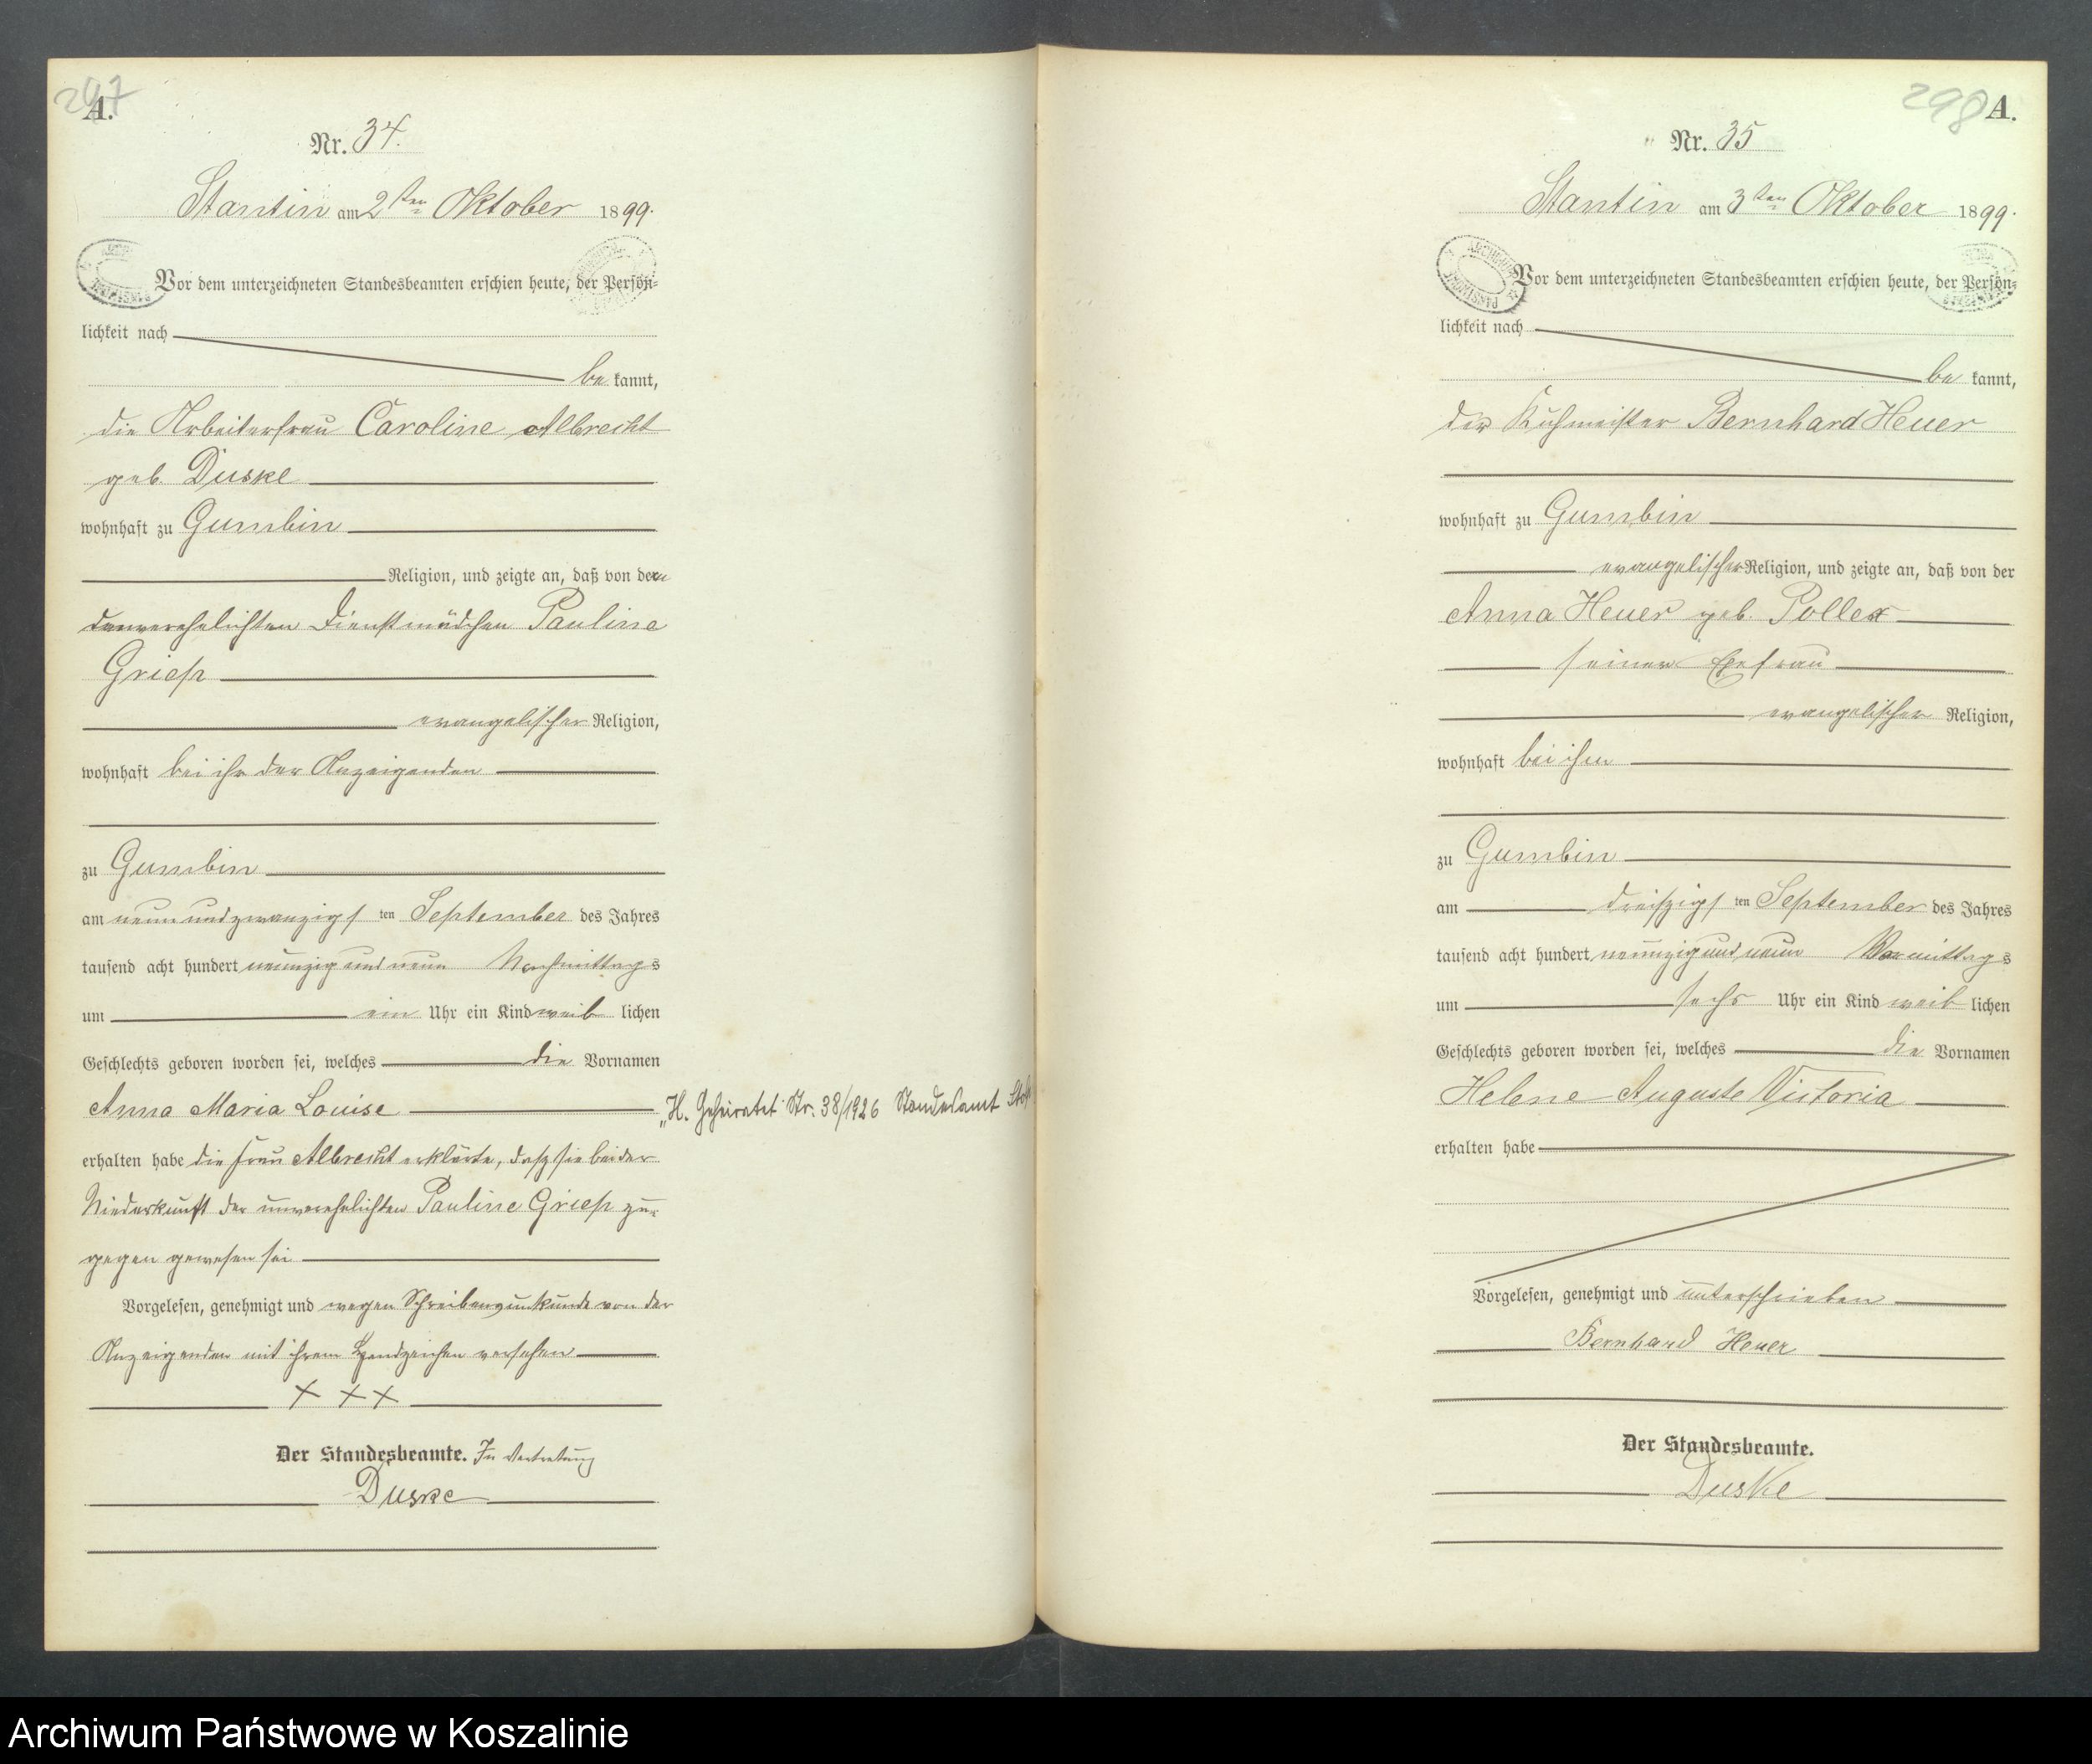 297
A.
Nr. 34.
Stantin am 2ten Oktober 1899.
Vor dem unterzeichneten Standesbeamten erschien heute, der Persön=
lichkeit nach
be kannt,
die Arbeiterfrau Caroline Albrecht
geb. Duske
wohnhaft zu Gumbin
Religion, und zeigte an, daß von der
unverehelichten Dienstmädchen Pauline
Griep
evangelischer Religion,
wohnhaft bei ihr der Anzeigenden
zu Gumbin
am neunundzwanzigsten September des Jahres
tausend acht hundert neunzig und neun Nachmittags
um ein Uhr ein Kind weib lichen
Geschlechts geboren worden sei, welches die Vornamen
Anna Maria Louise
„H. Geheiratet Nr. 38/1926 Standesamt
erhalten habe die Frau Albrecht erklärte, daß sie bei der
Niederkunft der unverehelichten Pauline Griep zu=
gegen gewesen sei
Vorgelesen, genehmigt und wegen Schreibensunkunde von der
Anzeigenden mit ihrem Handzeichen versehen
+ + +
Der Standesbeamte. In Vertretung
Duske
298
A.
Nr. 35
Stantin am 3ten Oktober 1899.
Vor dem unterzeichneten Standesbeamten erschien heute, der Persön=
lichkeit nach
be kannt,
der Kuhmeister Bernhard Heuer
wohnhaft zu Gumbin
evangelischer Religion, und zeigte an, daß von der
Anna Heuer geb. Pollex
seiner Ehefrau
evangelischer Religion,
wohnhaft bei ihm
zu Gumbin
am dreißigsten September des Jahres
tausend acht hundert neunzig und neun Vormittags
um sechs Uhr ein Kind weib lichen
Geschlechts geboren worden sei, welches die Vornamen
Helene Auguste Victoria
erhalten habe
Vorgelesen, genehmigt und unterschrieben
Bernhard Heuer
Der Standesbeamte.
Duske
Archiwum Państwowe w Koszalinie